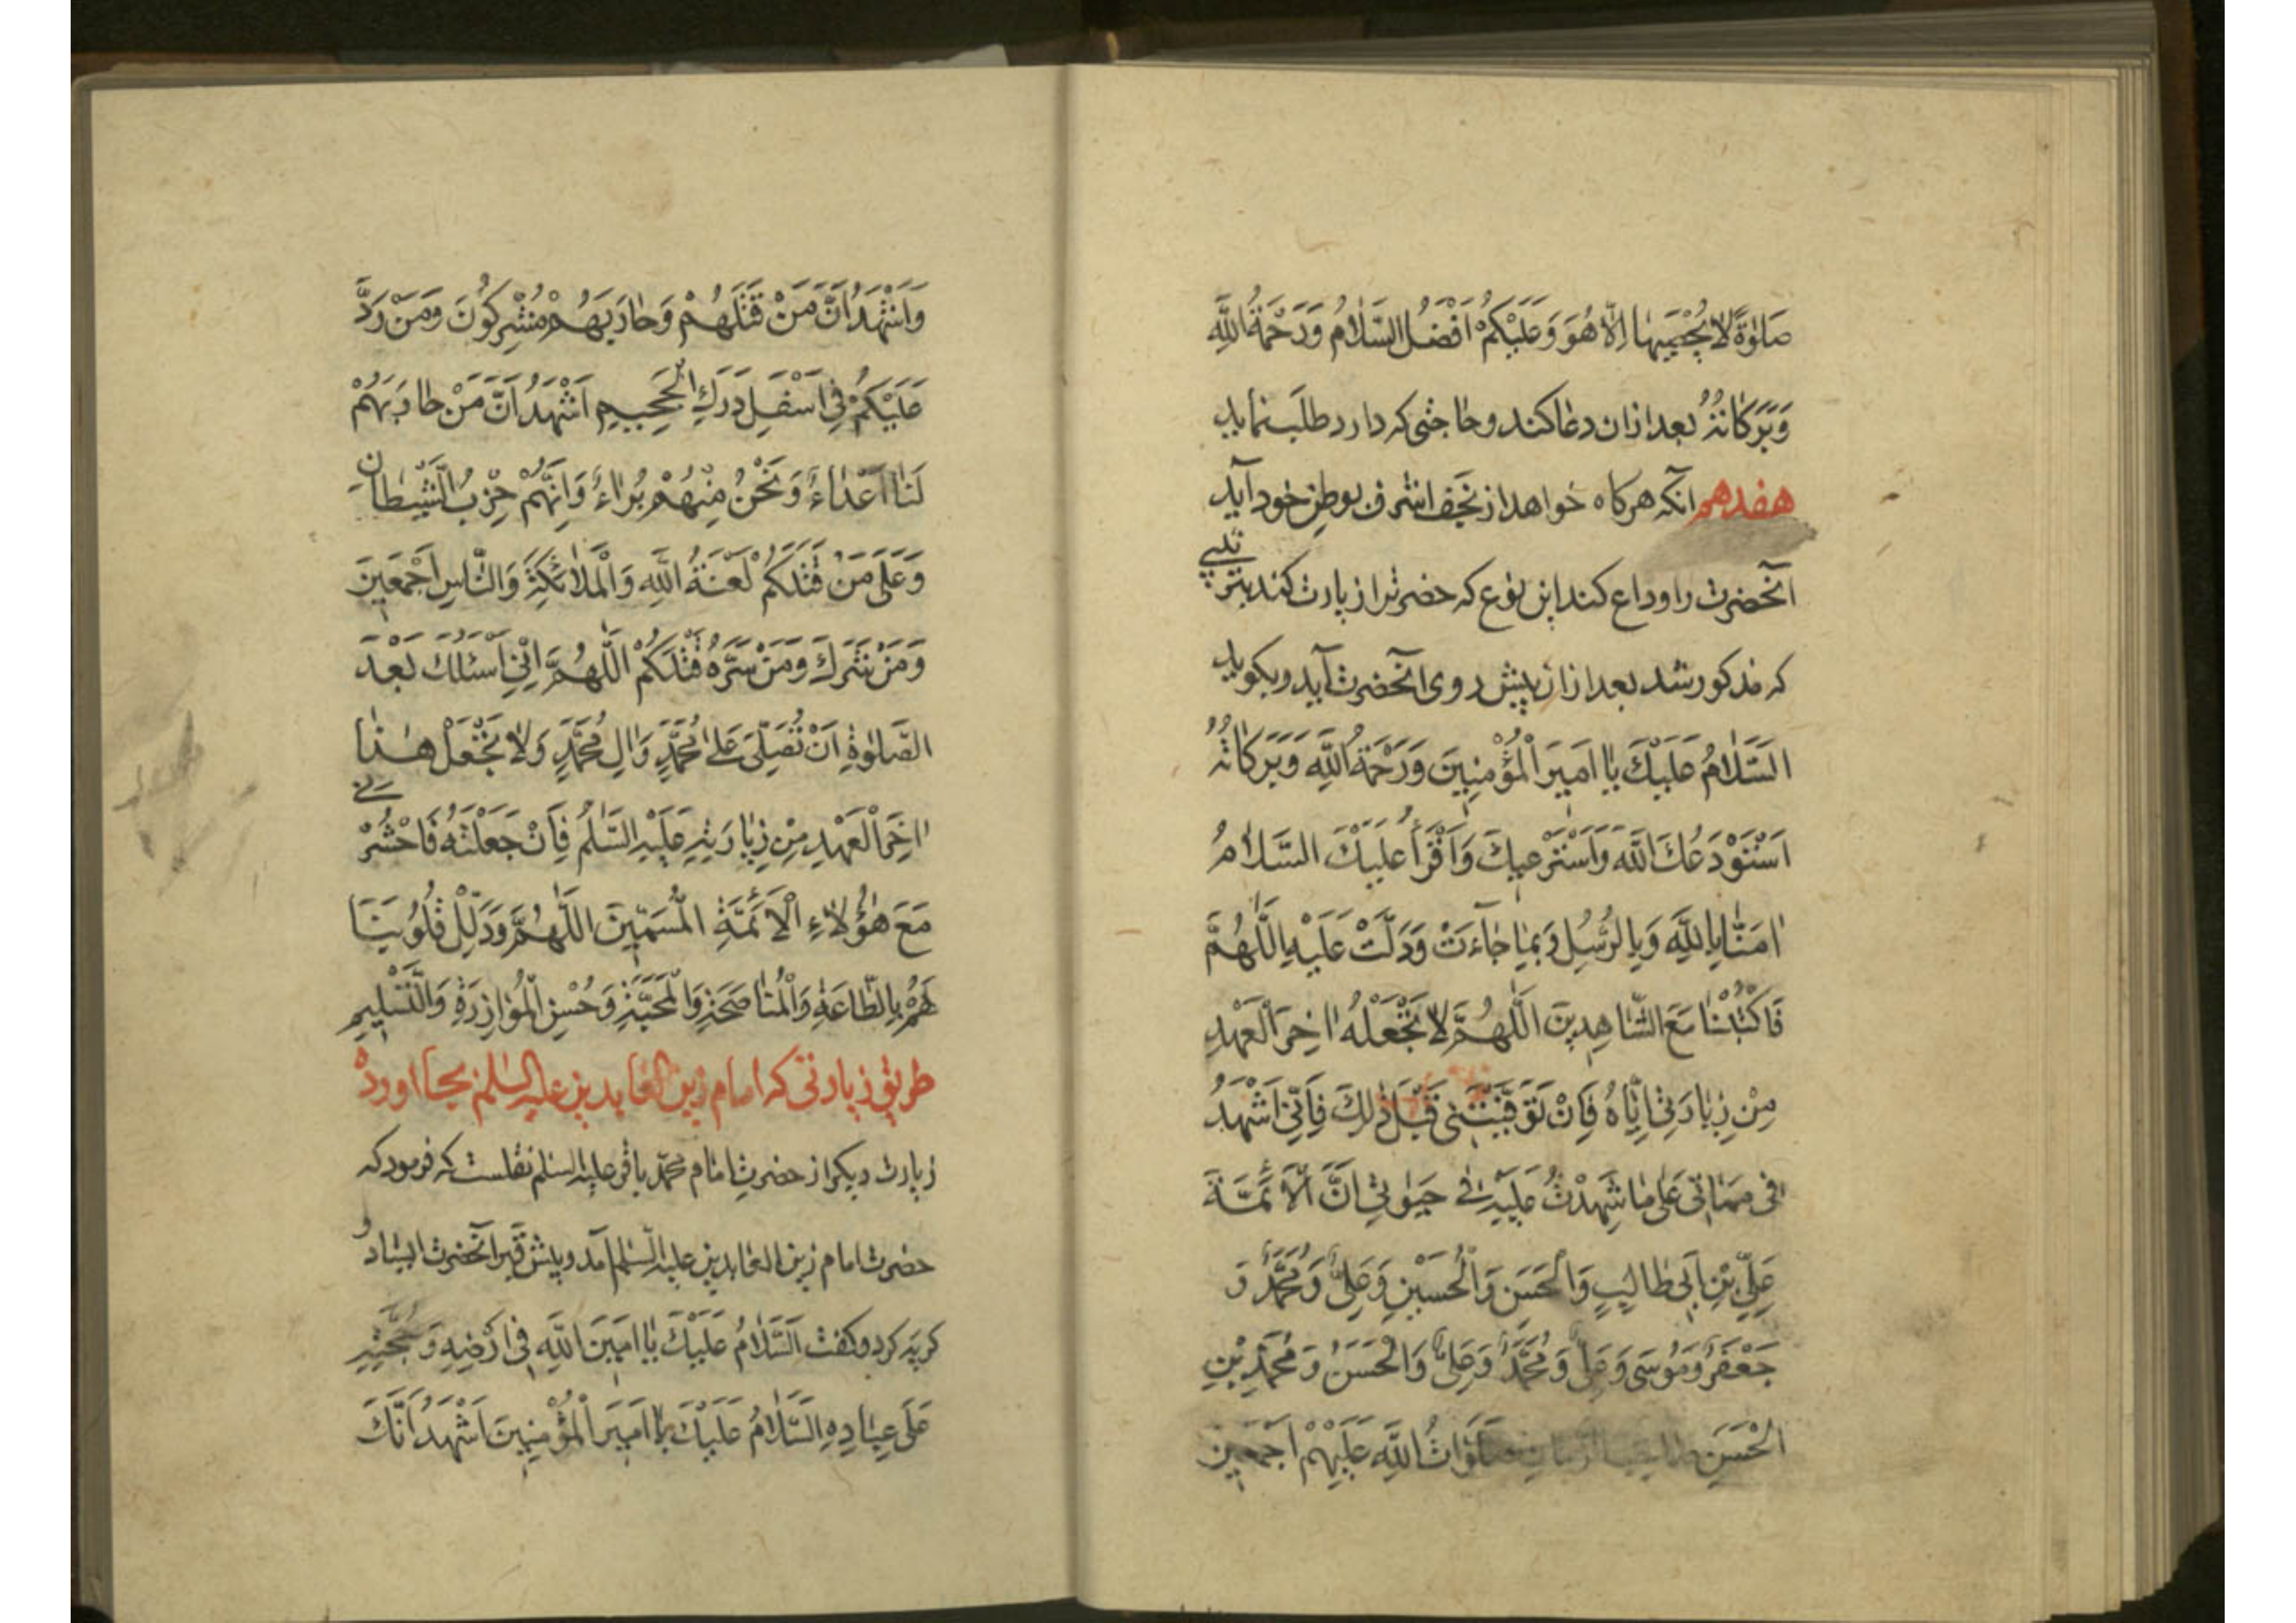 صَلٰوةً لَا يُحْصِيهَا اِلَّا هُوَ وَعَلَيْكُمْ اَفْضَلُ السَّلَامُ وَرَحْمَةُ اللّٰهِ
وَبَرَكَاتُهُ بعد ازان دعا کند وحاجتی که دارد طلب نماید
هفدهم آنکه هرکاه خواهد از نجف اشرف بوطن خود آید
آنحضرت را وداع کند این نوع که حضرترا زیارت کند بترتیبی
که مذکور شد بعد ازان پیش روی آنحضرت آید وبکوید
اَلسَّلَامُ عَلَيْكَ يَا اَمِيرَ الْمُؤْمِنِينَ وَرَحْمَةُ اللّٰهِ وَبَرَكَاتُهُ
اَسْتَوْدِعُكَ اللّٰهَ وَاَسْتَرْعِيكَ وَاَقْرَأُ عَلَيْكَ السَّلَامُ
اٰمَنَّا بِاللّٰهِ وَبِالرُّسُلِ وَبِمَا جَآءَتْ وَدَلَّتْ عَلَيْهِ اَللّٰهُمَّ
فَاكْتُبْنَا مَعَ الشَّاهِدِينَ اَللّٰهُمَّ لَا تَجْعَلْهُ اٰخِرَ الْعَهْدِ
مِنْ زِيَارَتِي اِيَّاهُ فَاِنْ تَوَفَّيْتَنِي قَبْلَ ذٰلِكَ فَاِنِّي اَشْهَدُ
فِي مَمَاتِي عَلٰى مَا شَهِدْتُ عَلَيْهِ فِي حَيٰوتِي اَنَّ الْاَئِمَّةَ
عَلِيِّ بْنِ اَبِي طَالِبٍ وَالْحَسَنِ وَالْحُسَيْنِ وَعَلِيٌّ وَمُحَمَّدٌ وَ
جَعْفَرٌ وَمُوسَى وَعَلِيٌّ وَمُحَمَّدٌ وَعَلِيٌّ وَالْحَسَنُ وَمُحَمَّدِ بْنِ
الْحَسَنِ صَلَوَاتُ اللّٰهِ عَلَيْهِمْ اَجْمَعِينَ
وَاَشْهَدُ اَنَّ مَنْ قَتَلَهُمْ وَحَارَبَهُمْ مُشْرِكُونَ وَمَنْ رَدَّ
عَلَيْكُمْ فِي اَسْفَلِ دَرَكِ الْجَحِيمِ اَشْهَدُ اَنَّ مَنْ حَارَبَهُمْ
لَنَا اَعْدَاءٌ وَنَحْنُ مِنْهُمْ بُرَاءُ وَاِنَّهُمْ حِزْبُ الشَّيْطَانِ
وَعَلٰى مَنْ قَتَلَكُمْ لَعْنَةُ اللّٰهِ وَالْمَلَائِكَةِ وَالنَّاسِ اَجْمَعِينَ
وَمَنْ شَرَكَ وَمَنْ سَرَّهُ قَتْلَكُمْ اَللّٰهُمَّ اِنِّي اَسْئَلُكَ بَعْدَ
الصَّلٰوةِ اَنْ تُصَلِّيَ عَلٰى مُحَمَّدٍ وَاٰلِ مُحَمَّدٍ وَلَا تَجْعَلْ هٰذَا
اٰخِرَ الْعَهْدِ مِنْ زِيَارَتِهِ عَلَيْهِ السَّلٰمُ فَاِنْ جَعَلْتَهُ فَاحْشُرْنِي
مَعَ هٰؤُلَاءِ الْاَئِمَّةِ الْمُسَمَّيْنَ اَللّٰهُمَّ وَذَلِّلْ قُلُوبَنَا
لَهُمْ بِالطَّاعَةِ وَالْمُنَاصَحَةِ وَالْمَحَبَّةِ وَحُسْنِ الْمُؤَازِرَةِ وَالتَّسْلِيمِ
طریق زیارتی که امام زین العابدین علیه السلم بجا اورده
زیارت دیکر از حضرت امام محمد باقر علیه السلم نقلست که فرمود که
حضرت امام زین العابدین علیه السلم آمد وپیش قبر آنحضرت ایستاد و
کریه کرد وکفت اَلسَّلَامُ عَلَيْكَ يَا اَمِينَ اللّٰهِ فِي اَرْضِهِ وَحُجَّتِهِ
عَلٰى عِبَادِهِ السَّلَامُ عَلَيْكَ يَا اَمِيرَ الْمُؤْمِنِينَ اَشْهَدُ اَنَّكَ